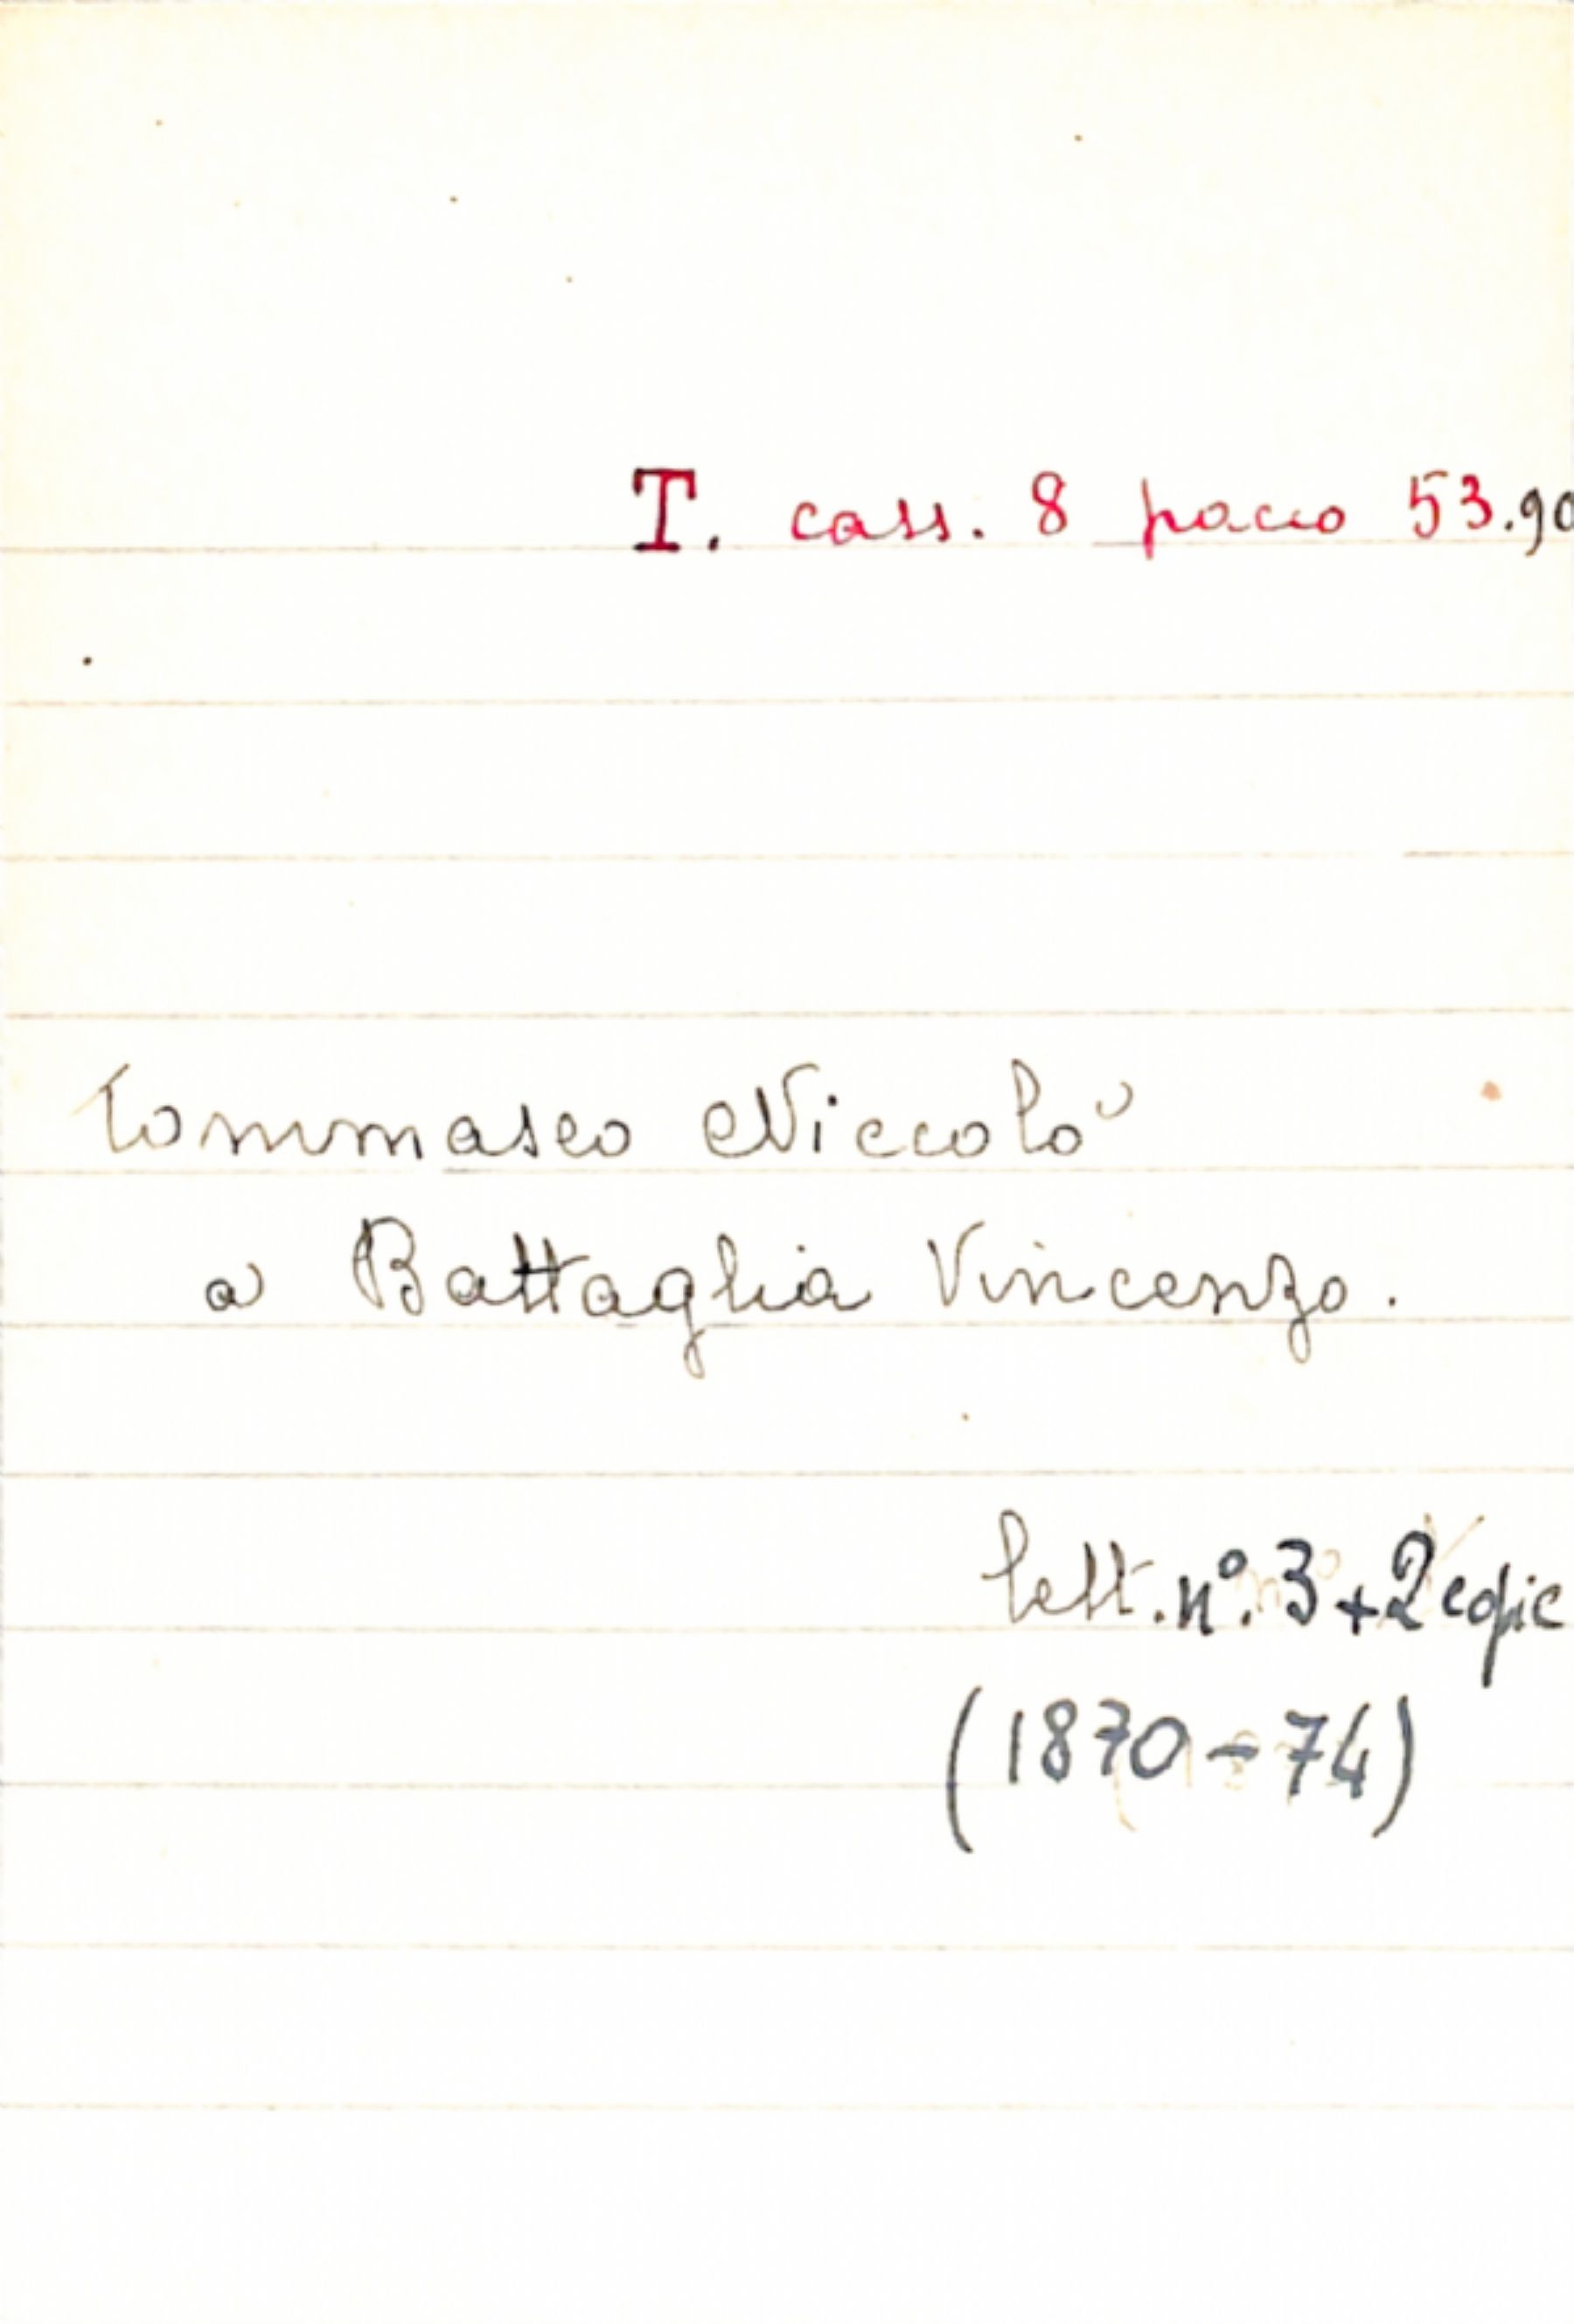 T. cass. 8 pacco 53.90
Tommaseo Niccolò
a Battaglia Vincenzo.
lett. n°. 3 + 2 copie
(1870-74)